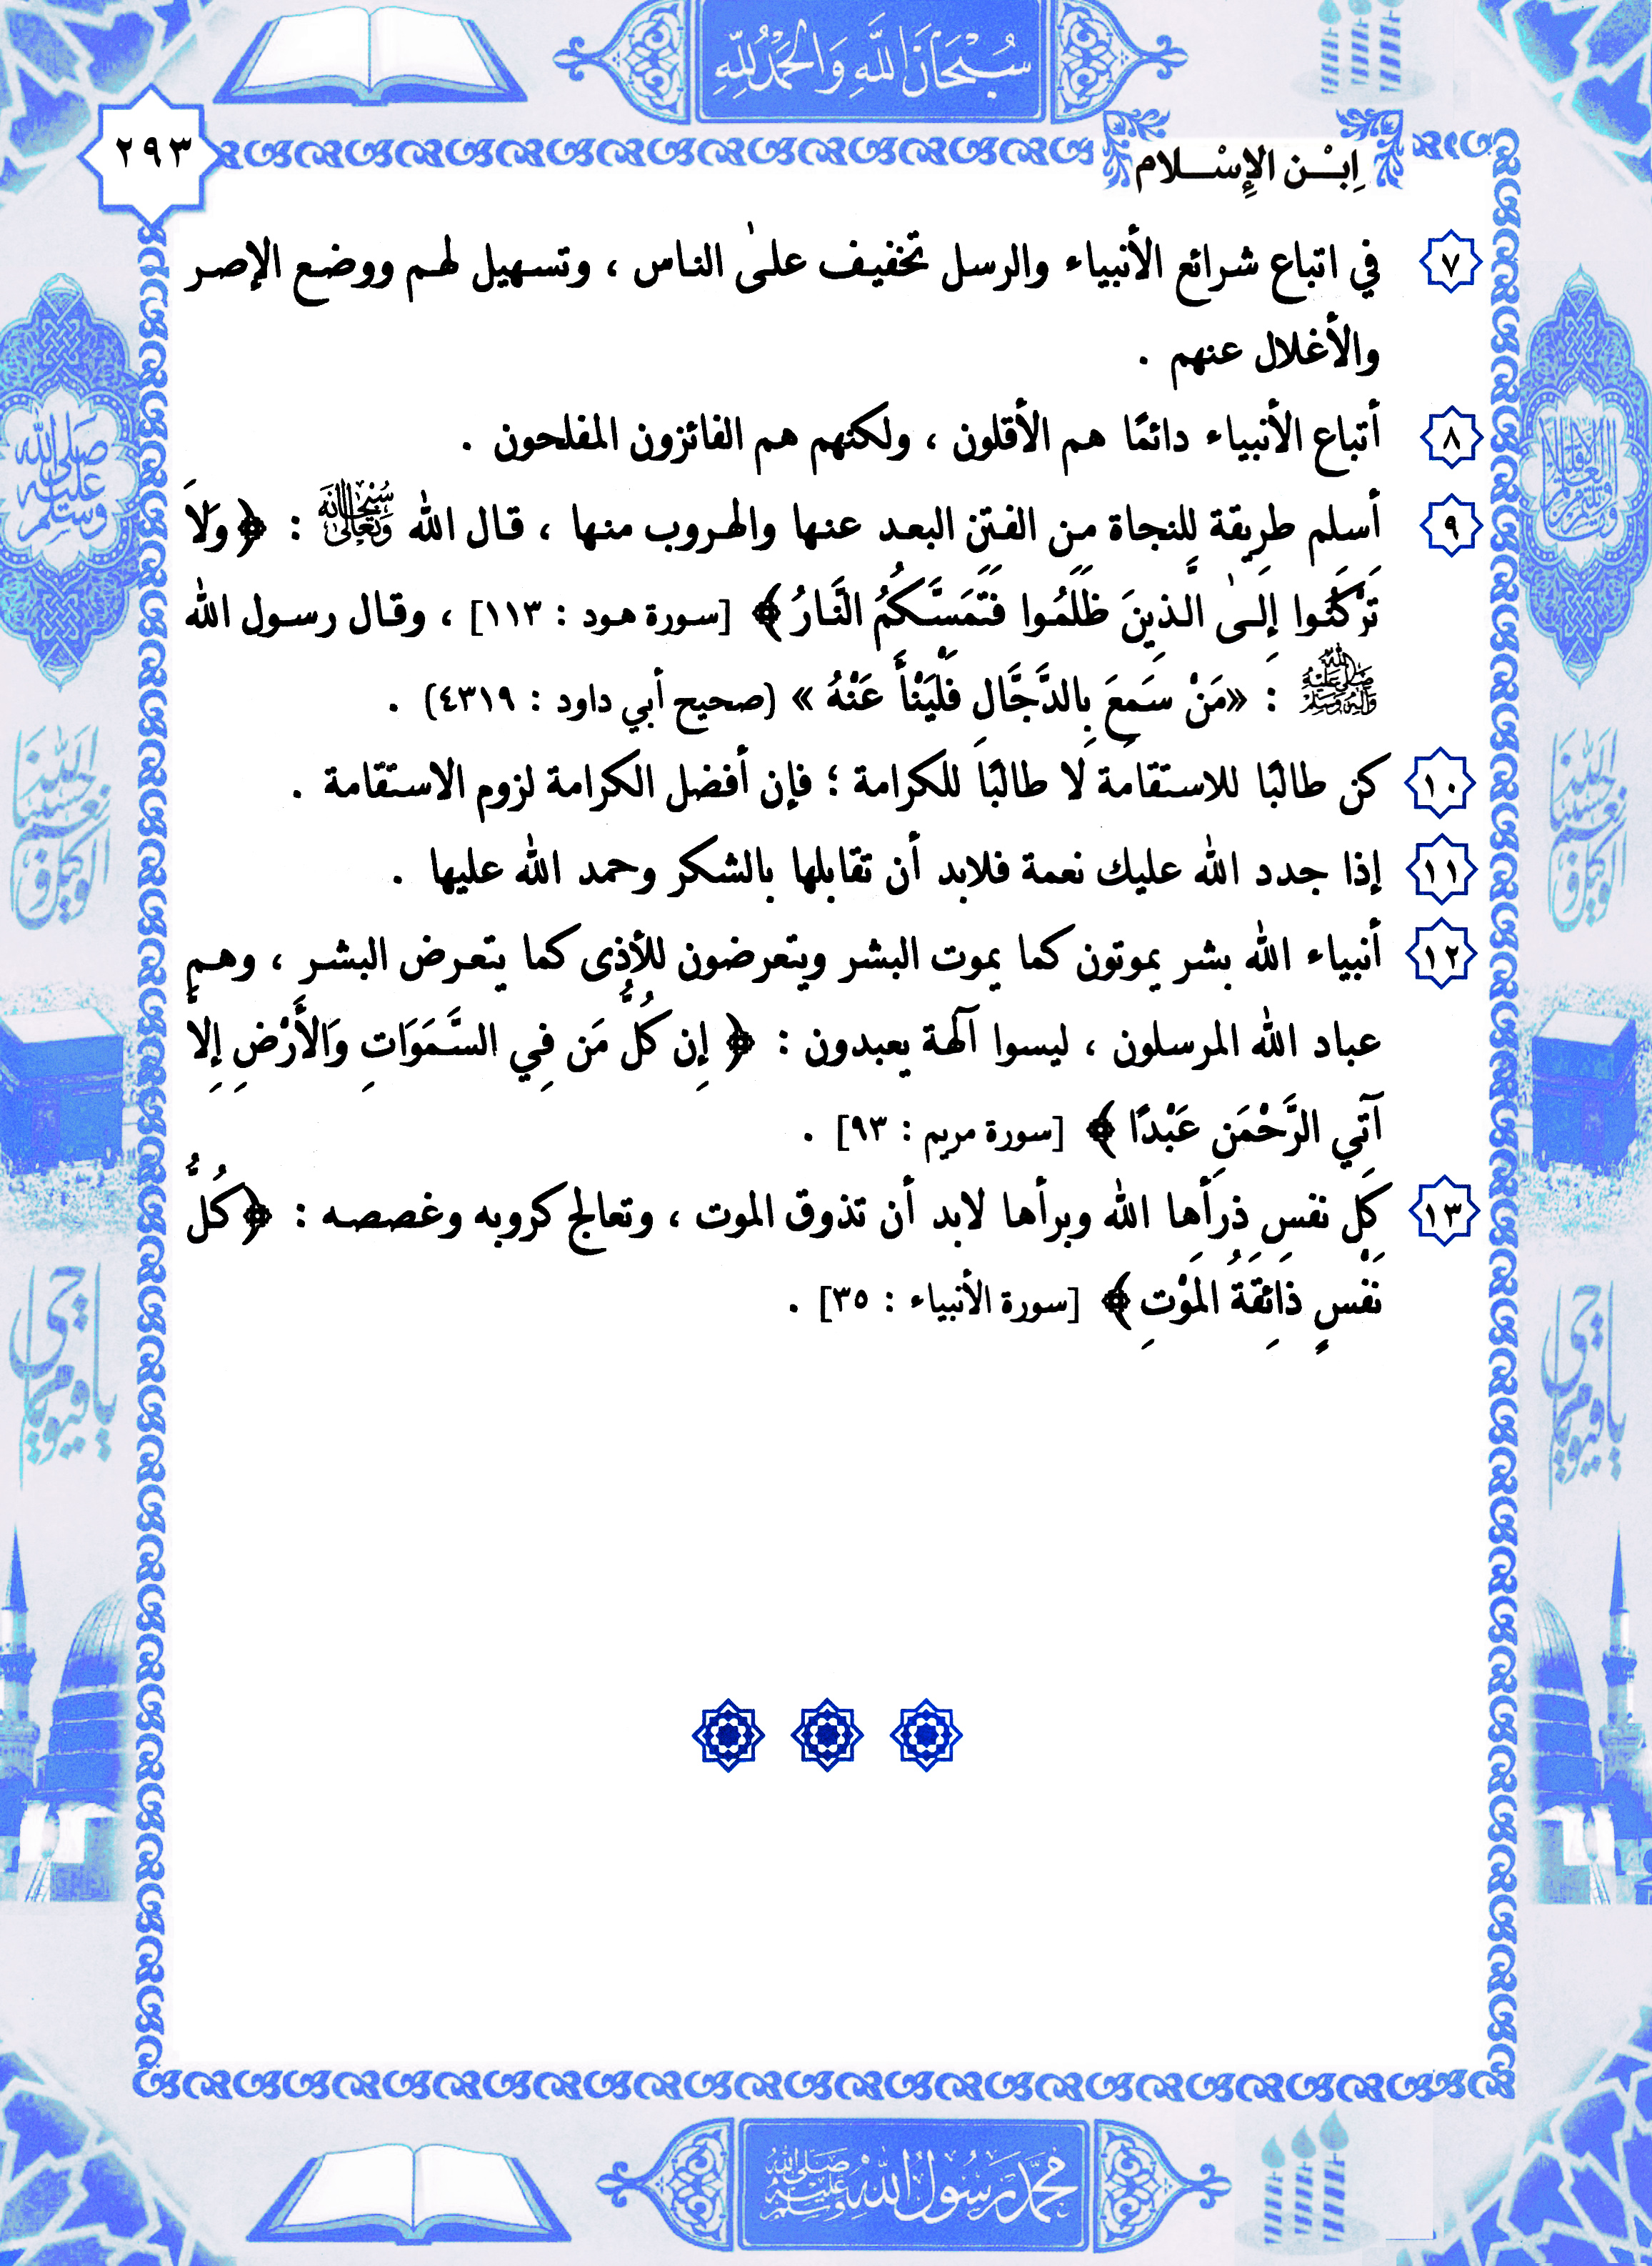 سُبْحَانَ اللَّهِ وَالْحَمْدُ لِلَّهِ
٢٩٣
اِبْـن الإِسْـلام
٧ في اتباع شرائع الأنبياء والرسل تخفيف علىٰ الناس ، وتسهيل لهم ووضع الإصر
والأغلال عنهم .
٨ أتباع الأنبياء دائمًا هم الأقلون ، ولكنهم هم الفائزون المفلحون .
٩ أسلم طريقة للنجاة من الفتن البعد عنها والهروب منها ، قال الله سُبْحَانَهُ وَتَعَالَىٰ : ﴿وَلَا
تَرْكَنُوا إِلَىٰ الَّذِينَ ظَلَمُوا فَتَمَسَّكُمُ النَّارُ﴾ [سورة هود : ١١٣] ، وقال رسول الله
ﷺ : «مَنْ سَمِعَ بِالدَّجَّالِ فَلْيَنْأَ عَنْهُ» (صحيح أبي داود : ٤٣١٩) .
١٠ كن طالبًا للاستقامة لا طالبًا للكرامة ؛ فإن أفضل الكرامة لزوم الاستقامة .
١١ إذا جدد الله عليك نعمة فلابد أن تقابلها بالشكر وحمد الله عليها .
١٢ أنبياء الله بشر يموتون كما يموت البشر ويتعرضون للأذى كما يتعرض البشر ، وهم
عباد الله المرسلون ، ليسوا آلهة يعبدون : ﴿ إِن كُلُّ مَن فِي السَّمَوَاتِ وَالأَرْضِ إِلَّا
آتِي الرَّحْمَنِ عَبْدًا ﴾ [سورة مريم : ٩٣] .
١٣ كل نفس ذرأها الله وبرأها لابد أن تذوق الموت ، وتعالج كروبه وغصصه : ﴿كُلُّ
نَفْسٍ ذَائِقَةُ المَوْتِ﴾ [سورة الأنبياء : ٣٥] .
صلى الله عليه وسلم
محمد رسول الله صلى الله عليه وسلم